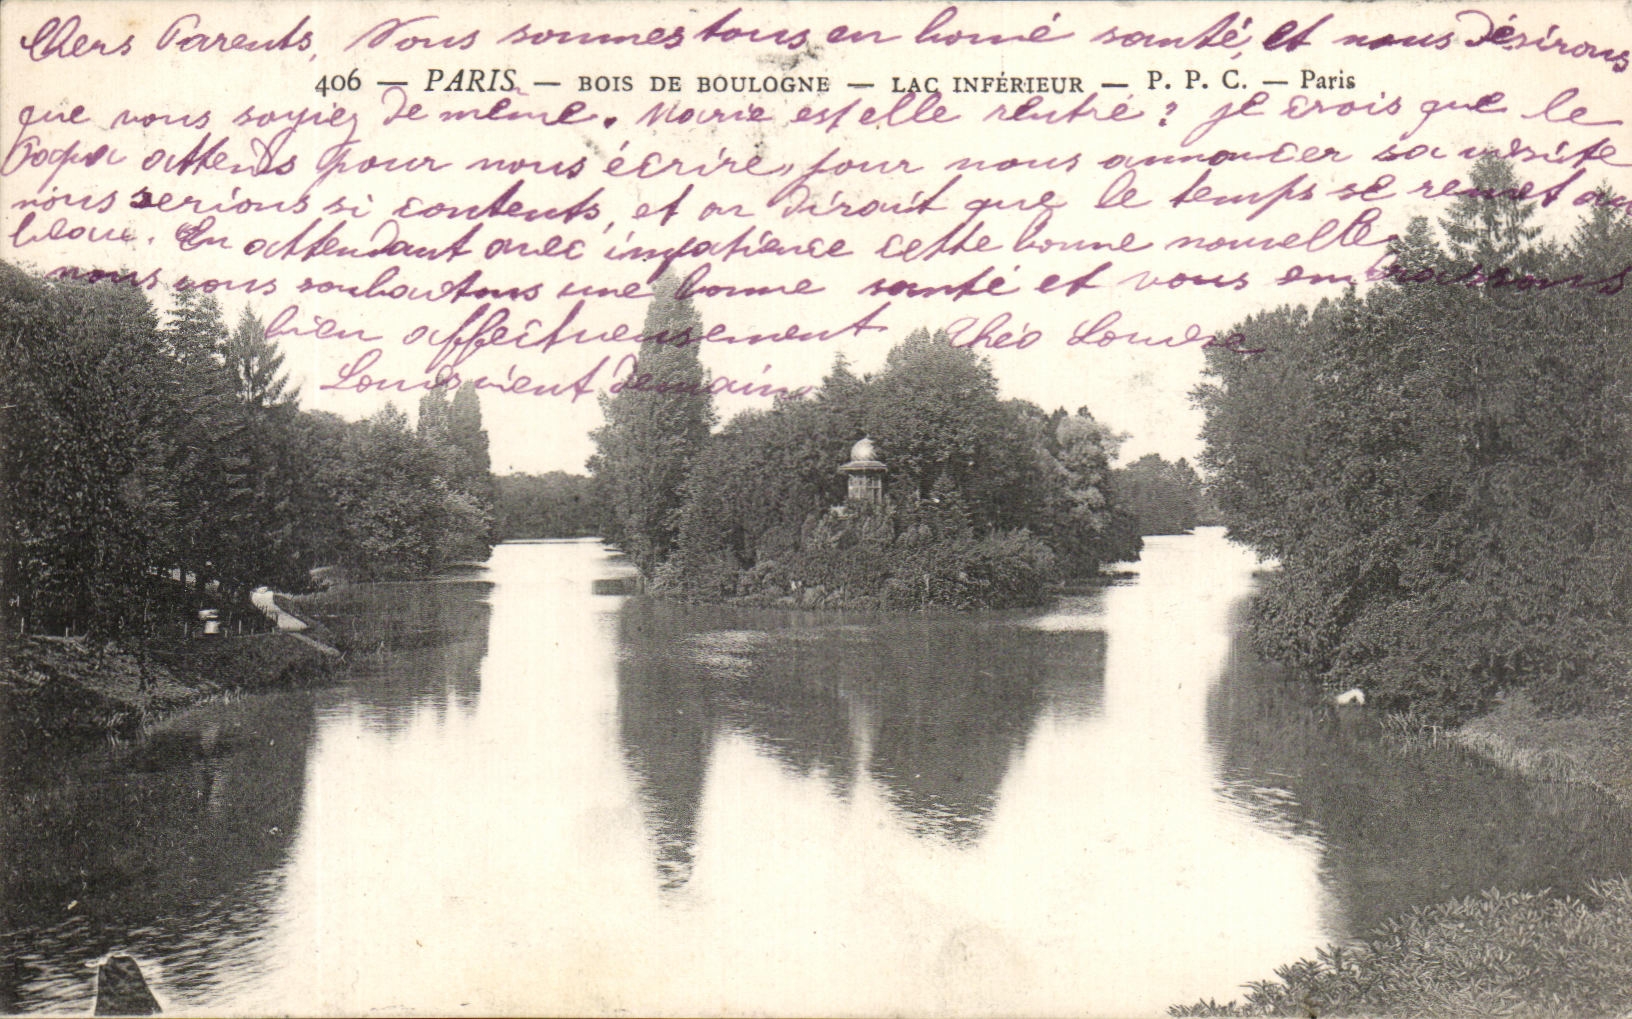 Chers Parents, Nous sommes tous en bonne santé, et nous désirons
406 — PARIS — BOIS DE BOULOGNE — LAC INFÉRIEUR — P. P. C. — Paris
que vous soyiez de même. Marie est elle rentré ? je crois que le
Papa attends pour nous écrire, pour nous annoncer sa visite
nous serions si contents, et on dirait que le temps se remet au
beau. En attendant avec impatience cette bonne nouvelle
nous vous souhaitons une bonne santé et vous embrassons
bien affectueusement Théo Louise
Louis vient demain